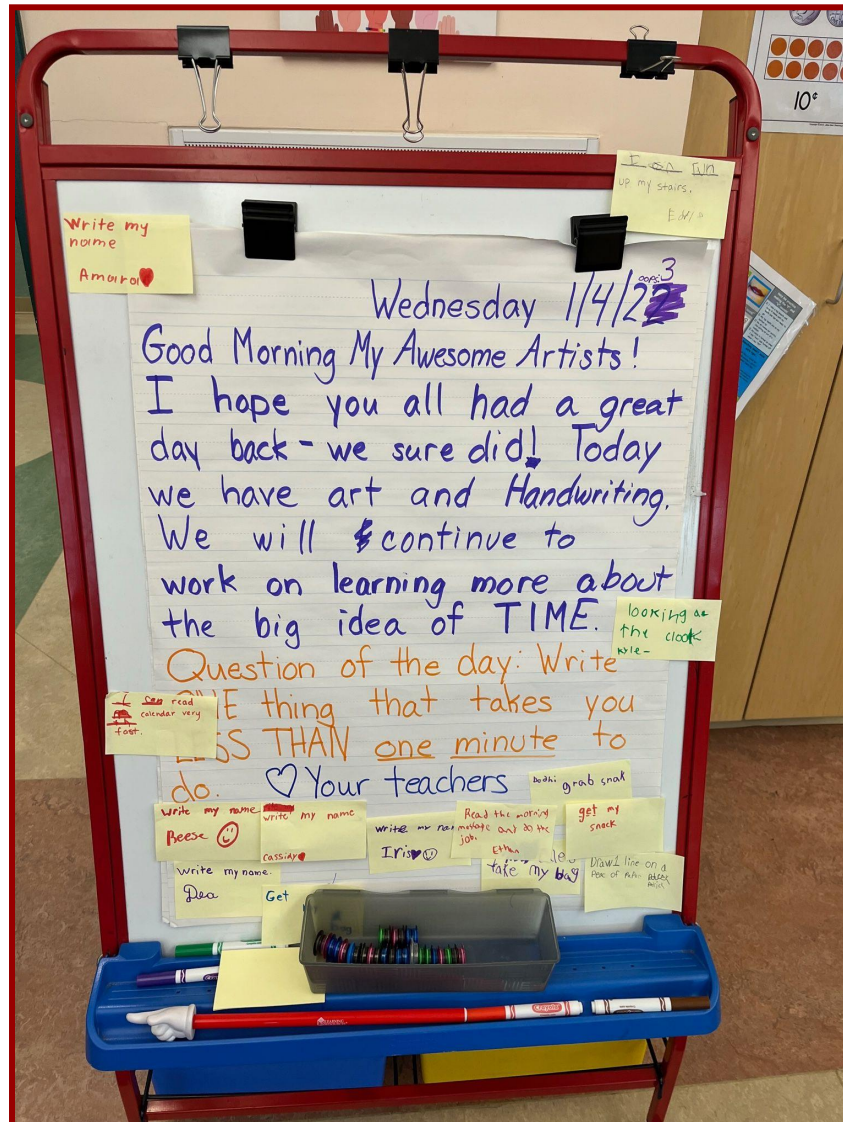 10¢
I can run
up my stairs.
Write my
name
Amara
oops! 3
Wednesday 1/4/22
Good Morning My Awesome Artists!
I hope you all had a great
day back - we sure did! Today
we have art and Handwriting.
We will continue to
work on learning more about
the big idea of TIME.
looking at
the clock
Kyle-
Question of the day: Write
thing that takes you
THAN one minute to
do. ♡ Your teachers
I can read
calendar very
fast.
bodhi grab snak
Write my name
Reese
write my name
cassidy
write my
Iris
Read the morning
message and do the
job.
Ethan
get my
snack
Write my name.
Dea
Get
take my bag
Draw 1 line on a
Crayola